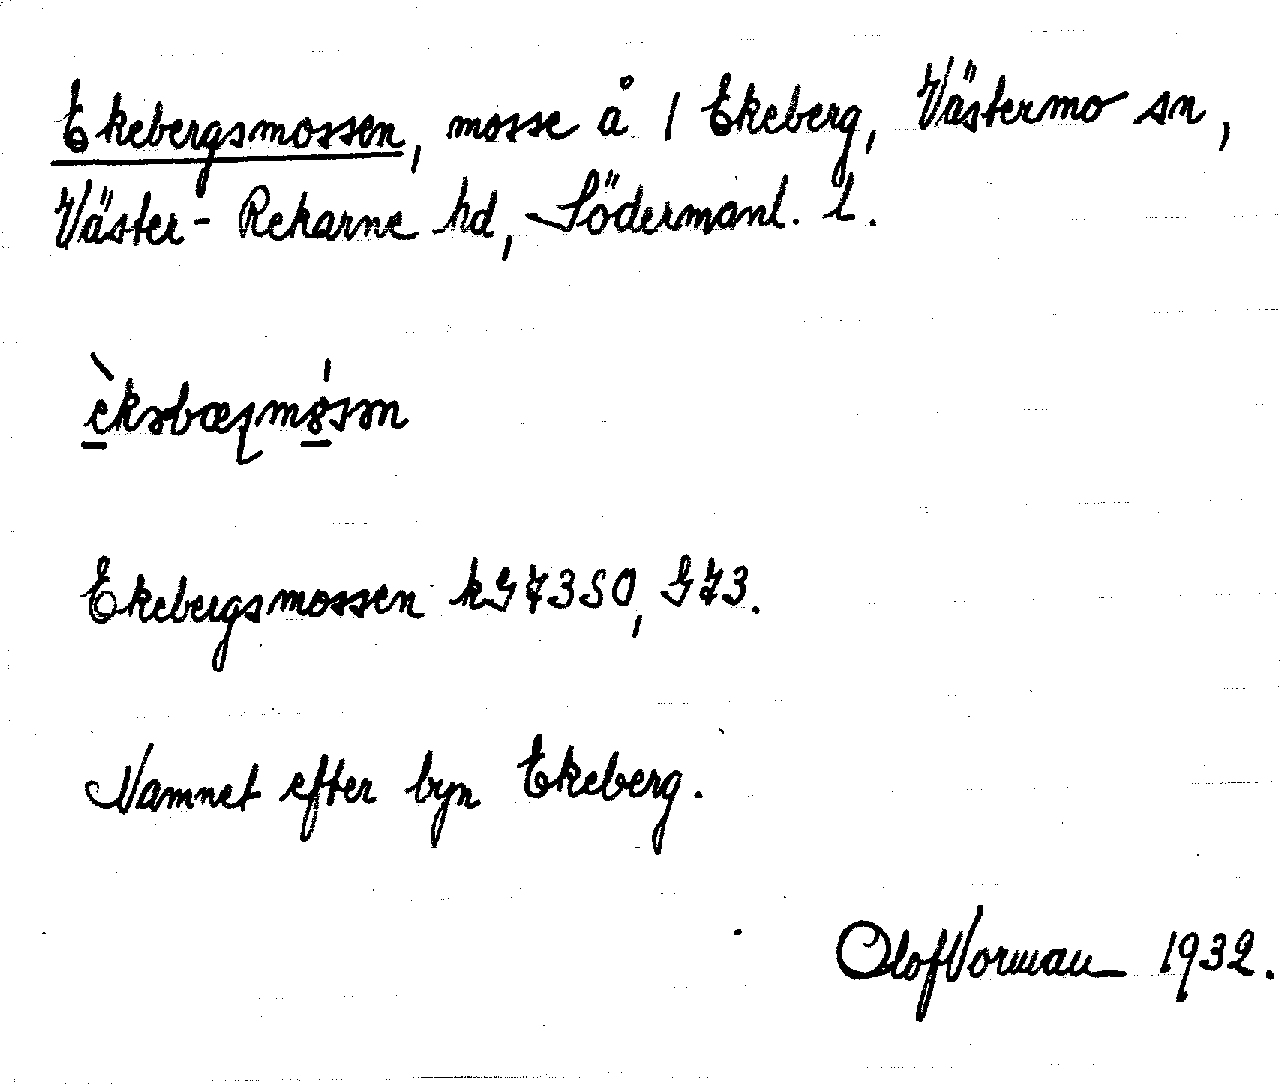 Ekebergsmossen, mosse å 1 Ekeberg, Västermo sn,
Väster-Rekarne hd, Södermanl. l.
Ekebergsmossen kG73SO, G73.
Namnet efter byn Ekeberg.
Olof Vorman 1932.